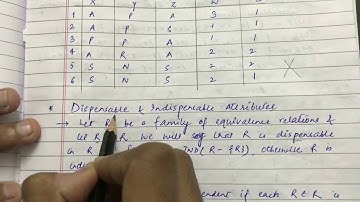 X Y Z W
1 A P A 3 1
2 A P S 1
3 P P A 1 1
4 A R A 2 2
5 S N S 2 2
6 S N S 2 1
* Dispensable & Indispensable Attributes
→ Let R be a family of equivalence relations &
let R R. We will say that R is dispensable
in R IND(R - {R}), otherwise R is
if each R ∈ R is